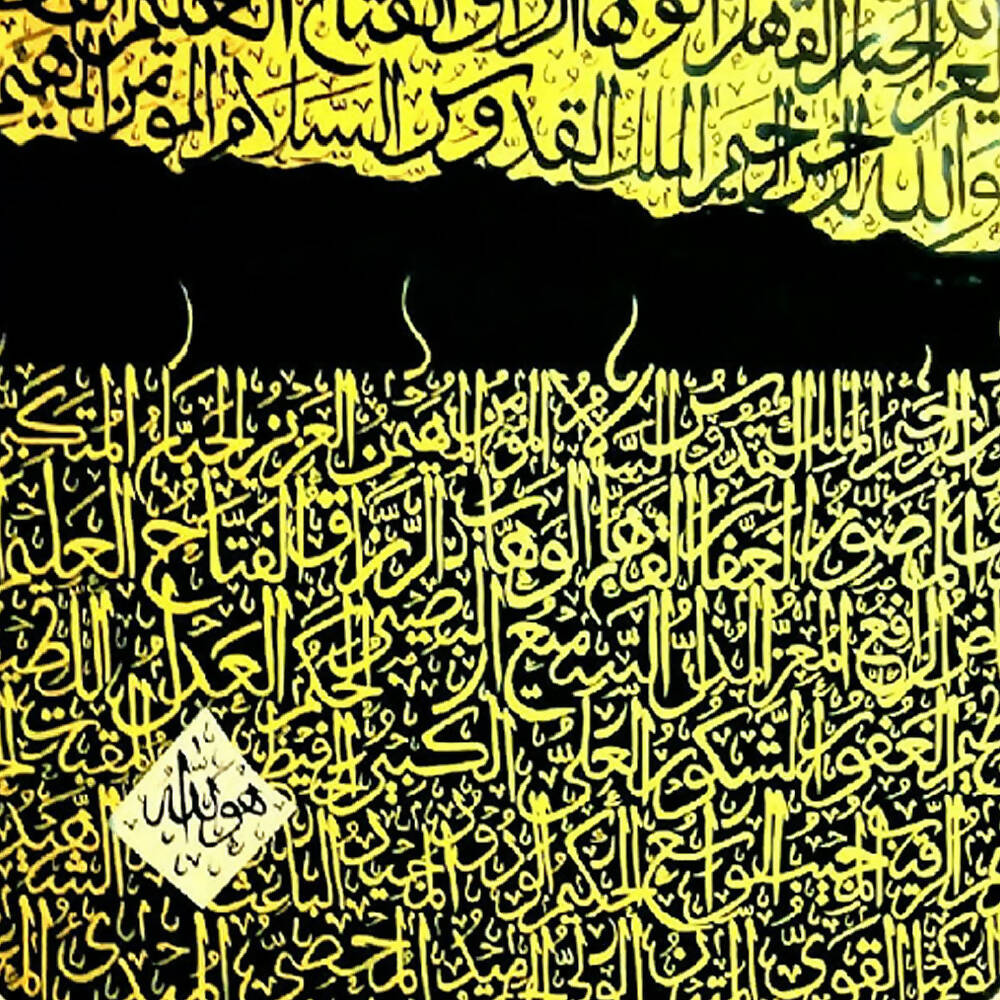 الجبار القهار الوهاب الرزاق الفتاح العليم
العزيز
والله الرحمن الرحيم الملك القدوس السلام المؤمن المهيمن
الرحيم الملك القدوس السلام المؤمن المهيمن العزيز الجبار المتكبر
المصور الغفار القهار الوهاب الرزاق الفتاح العليم
الرافع المعز المذل السميع البصير الحكم العدل اللطيف
الغفور الشكور العلي الكبير الحفيظ المقيت
الرقيب المجيب الواسع الحكيم الودود المجيد الباعث الشهيد
هو الله
الوكيل القوي المتين الولي الحميد المحصي المبدئ